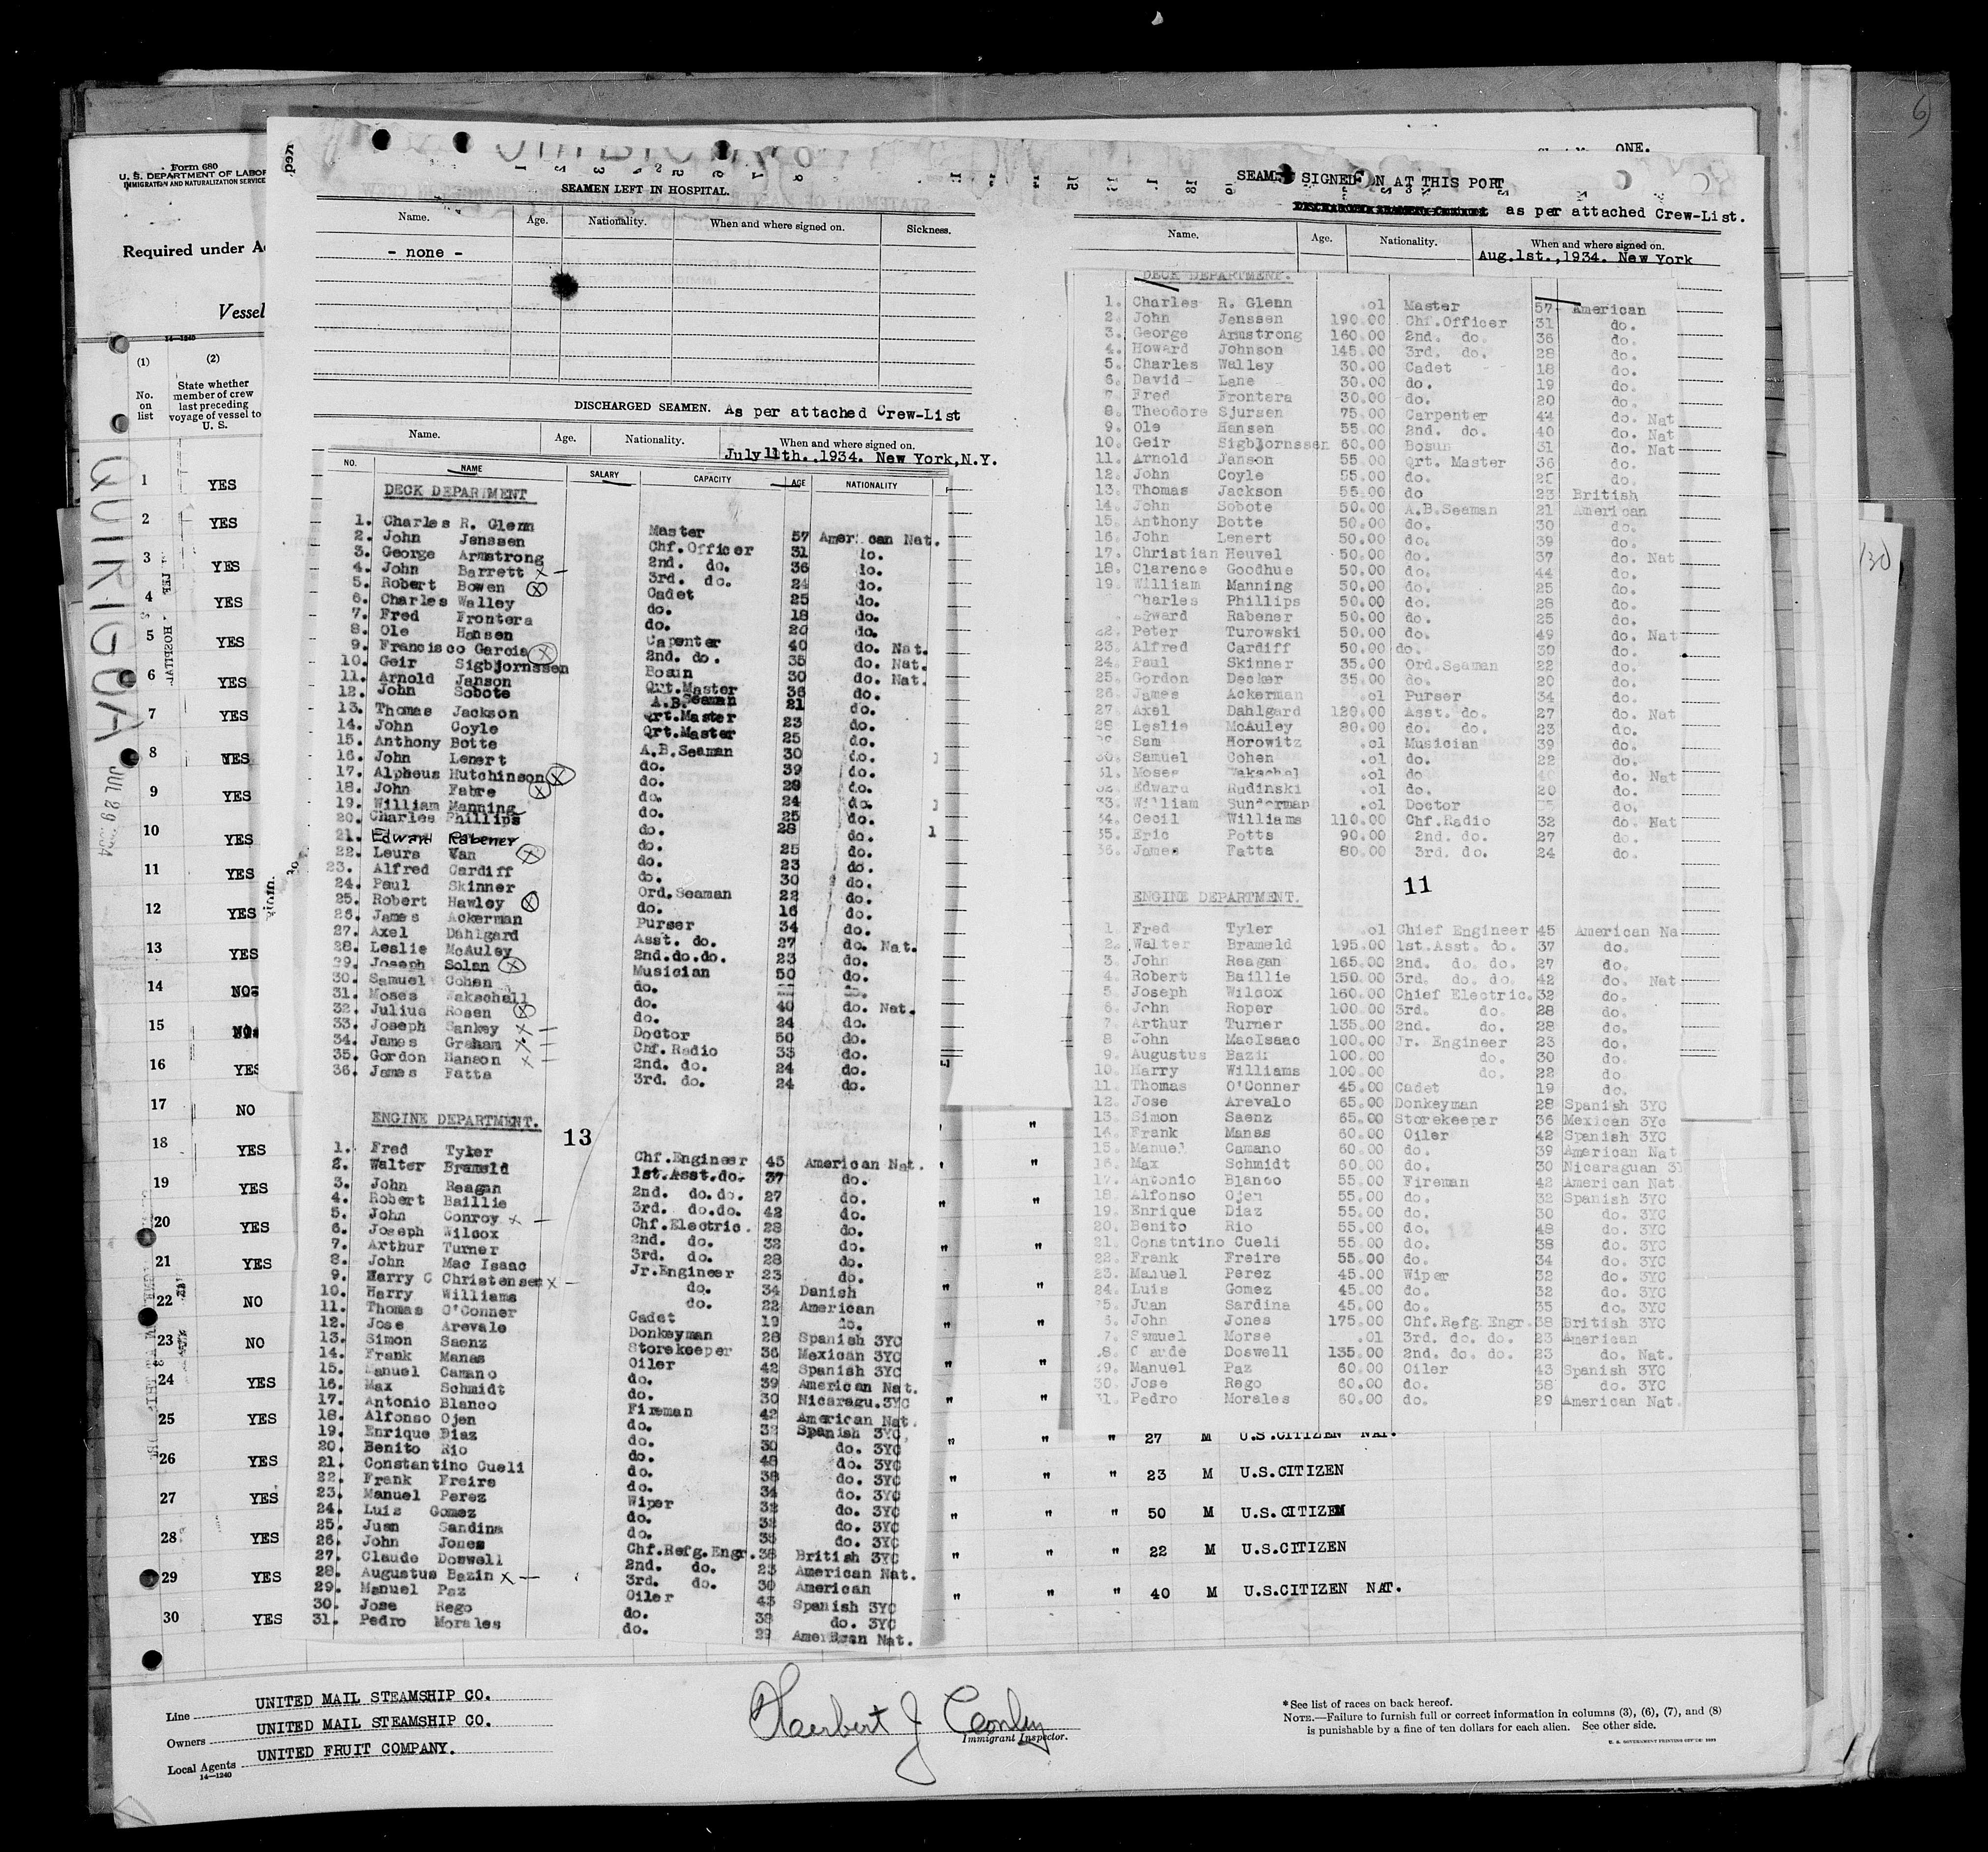 Form 680
U. S. DEPARTMENT OF LABOR
IMMIGRATION AND NATURALIZATION SERVICE
Required under A
Vessel
14—1240
(1) (2)
No. on list
State whether member of crew last preceding voyage of vessel to U. S.
QUIRIGUA
1 YES
2 YES
3 YES
4 YES
5 YES
6 YES
7 YES
8 YES
9 YES
10 YES
11 YES
12 YES
13 YES
14 NO
15 NO
16 YES
17 NO
18 YES
19 YES
20 YES
21 YES
22 NO
23 NO
24 YES
25 YES
26 YES
27 YES
28 YES
29 YES
30 YES
SEAMEN LEFT IN HOSPITAL.
Name. Age. Nationality. When and where signed on. Sickness.
- none -
DISCHARGED SEAMEN. As per attached Crew-List
Name. Age. Nationality. When and where signed on.
July 11th.,1934. New York,N.Y.
NO. NAME SALARY CAPACITY AGE NATIONALITY
DECK DEPARTMENT
1. Charles R. Glenn Master 57 American Nat.
2. John Janssen Chf.Officer 31 do.
3. George Armstrong 2nd. do. 36 do.
4. John Barrett x — 3rd. do. 24 do.
5. Robert Bowen ⓧ Cadet 25 do.
6. Charles Walley do. 18 do.
7. Fred Frontera do. 20 do.
8. Ole Hansen Capenter 40 do. Nat.
9. Francisco Garcia ⓧ 2nd. do. 35 do. Nat.
10. Geir Sigbjornssen Bosun 30 do. Nat.
11. Arnold Janson Qrt.Master 36 do.
12. John Sobote A.B.Seaman 21 do.
13. Thomas Jackson Qrt.Master 23 do.
14. John Coyle Qrt.Master 25 do.
15. Anthony Botte A.B.Seaman 30 do.
16. John Lenert do. 39 do.
17. Alpheus Hutchinson ⓧ do. 28 do.
18. John Fabre ⓧ do. 24 do.
19. William Manning do. 25 do.
20. Charles Phillips do. 28 do.
21. Edward Rabener do. 25 do.
22. Leurs Van ⓧ do. 23 do.
23. Alfred Cardiff do. 30 do.
24. Paul Skinner Ord.Seaman 22 do.
25. Robert Hawley ⓧ do. 16 do.
26. James Ackerman Purser 34 do.
27. Axel Dahlgard Asst. do. 27 do. Nat.
28. Leslie McAuley 2nd.do.do. 23 do.
29. Joseph Solan ⓧ Musician 50 do.
30. Samuel Cohen do.
31. Moses Wakschall do. 40 do. Nat.
32. Julius Rosen ⓧ do. 24 do.
33. Joseph Sankey x — Doctor 50 do.
34. James Graham x — Chf. Radio 33 do.
35. Gordon Hanson x — 2nd. do. 24 do.
36. James Fatta 3rd. do. 24 do.
ENGINE DEPARTMENT. 13
1. Fred Tyler Chf.Engineer 45 American Nat.
2. Walter Brameld 1st.Asst.do. 37 do.
3. John Reagan 2nd. do.do. 27 do.
4. Robert Baillie 3rd. do.do. 42 do.
5. John Conroy x — Chf.Electric. 28 do.
6. Joseph Wilcox 2nd. do. 32 do.
7. Arthur Turner 3rd. do. 28 do.
8. John Mac Isaac Jr.Engineer 23 do.
9. Harry C Christensen x — do. 34 Danish
10. Harry Williams do. 22 American
11. Thomas O'Conner Cadet 19 do.
12. Jose Arevalo Donkeyman 28 Spanish 3YC
13. Simon Saenz Storekeeper 36 Mexican 3YC
14. Frank Manas Oiler 42 Spanish 3YC
15. Manuel Camano do. 39 American Nat.
16. Max Schmidt do. 30 Nicaragu.3YC
17. Antonio Blanco Fireman 42 American Nat.
18. Alfonso Ojen do. 32 Spanish 3YC
19. Enrique Diaz do. 30 do. 3YC
20. Benito Rio do. 48 do. 3YC
21. Constantino Cueli do. 38 do. 3YC
22. Frank Freire do. 34 do. 3YC
23. Manuel Perez Wiper 32 do. 3YC
24. Luis Gomez do. 32 do. 3YC
25. Juan Sandina do. 35 do. 3YC
26. John Jones Chf.Refg.Engr. 38 British 3YC
27. Claude Doswell 2nd. do. 23 American Nat.
28. Augustus Bazin x — 3rd. do. 30 American
29. Manuel Paz Oiler 43 Spanish 3YC
30. Jose Rego do. 38 do. 3YC
31. Pedro Morales do. 29 American Nat.
ONE.
SEAMEN SIGNED ON AT THIS PORT
as per attached Crew-List.
Name. Age. Nationality. When and where signed on.
Aug.1st.,1934. New York
DECK DEPARTMENT.
1. Charles R. Glenn .01 Master 57 American
2. John Jenssen 190.00 Chf.Officer 31 do.
3. George Armstrong 160.00 2nd. do. 36 do.
4. Howard Johnson 145.00 3rd. do. 28 do.
5. Charles Walley 30.00 Cadet 18 do.
6. David Lane 30.00 do. 19 do.
7. Fred Frontera 30.00 do. 20 do.
8. Theodore Sjursen 75.00 Carpenter 44 do. Nat
9. Ole Hansen 55.00 2nd. do. 40 do. Nat
10. Geir Sigbjornssen 60.00 Bosun 31 do. Nat
11. Arnold Janson 55.00 Qrt. Master 36 do.
12. John Coyle 55.00 do. do.
13. Thomas Jackson 55.00 do 23 British
14. John Sobote 50.00 A.B.Seaman 21 American
15. Anthony Botte 50.00 do. 30 do.
16. John Lenert 50.00 do. 39 do.
17. Christian Heuvel 50.00 do. 37 do. Nat
18. Clarence Goodhue 50.00 do. 44 do.
19. William Manning 50.00 do. 25 do.
Charles Phillips 50.00 do. 28 do.
Edward Rabener 50.00 do. 25 do.
22. Peter Turowski 50.00 do. 49 do. Nat
23. Alfred Cardiff 50.00 do. 30 do.
24. Paul Skinner 35.00 Ord.Seaman 22 do.
25. Gordon Decker 35.00 do. 20 do.
26. James Ackerman .01 Purser 34 do.
27. Axel Dahlgard 120.00 Asst. do. 27 do. Nat
28 Leslie McAuley 80.00 do. do. 23 do.
29 Sam Horowitz .01 Musician 39 do.
30. Samuel Cohen .01 do. 22 do.
31. Moses Wakschal .01 do do. Nat
32. Edward Rudinski .01 do. 20 do.
33. William Sunderman .01 Doctor do.
34. Cecil Williams 110.00 Chf.Radio 32 do. Nat
35. Eric Potts 90.00 2nd. do. 27 do.
36. James Fatta 80.00 3rd. do. 24 do.
11
ENGINE DEPARTMENT.
1. Fred Tyler .01 Chief Engineer 45 American Na
2. Walter Brameld 195.00 1st.Asst. do. 37 do.
3. John Reagan 165.00 2nd. do. do. 27 do.
4. Robert Baillie 150.00 3rd. do. do. 42 do. Nat
5. Joseph Wilcox 160.00 Chief Electric. 32 do.
6. John Roper 100.00 3rd. do. 28 do.
7. Arthur Turner 135.00 2nd. do. 28 do.
8 John MacIsaac 100.00 Jr. Engineer 23 do.
9. Augustus Bazin 100.00 do. 30 do.
10. Harry Williams 100.00 do. 22 do
11. Thomas O'Conner 45.00 Cadet 19 do.
12. Jose Arevalo 65.00 Donkeyman 28 Spanish 3YC
13. Simon Saenz 65.00 Storekeeper 36 Mexican 3Yc
14. Frank Manas 60.00 Oiler 42 Spanish 3YC
15. Manuel Camano 60.00 do. 39 American Nat
16. Max Schmidt 60.00 do. 30 Nicaraguan 3Y
17. Antonio Blanco 55.00 Fireman 42 American Nat.
18. Alfonso Ojen 55.00 do. 32 Spanish 3YC
19. Enrique Diaz 55.00 do. 30 do. 3YC
20. Benito Rio 55.00 do. 48 do. 3YC
21. Constntino Cueli 55.00 do. 38 do. 3YC
22. Frank Freire 55.00 do. 34 do. 3YC
23. Manuel Perez 45.00 Wiper 32 do. 3YC
24. Luis Gomez 45.00 do. 32 do. 3YC
25. Juan Sardina 45.00 do. 35 do. 3YC
6. John Jones 175.00 Chf.Refg.Engr. 38 British 3YC
7. Samuel Morse .01 3rd. do. do. 23 American
8. Claude Doswell 135.00 2nd. do. do. 23 do. Nat.
29. Manuel Paz 60.00 Oiler 43 Spanish 3YC
30. Jose Rego 60.00 do. 38 do. 3YC
31. Pedro Morales 60.00 do. 29 American Nat.
" " " 27 M U.S.CITIZEN NAT.
" " " 23 M U.S.CITIZEN
" " " 50 M U.S.CITIZEN
" " " 22 M U.S.CITIZEN
" " " 40 M U.S.CITIZEN NAT.
Line UNITED MAIL STEAMSHIP CO.
Owners UNITED MAIL STEAMSHIP CO.
Local Agents UNITED FRUIT COMPANY.
14—1240
Herbert J Conley
Immigrant Inspector.
* See list of races on back hereof.
NOTE.—Failure to furnish full or correct information in columns (3), (6), (7), and (8)
is punishable by a fine of ten dollars for each alien. See other side.
U. S. GOVERNMENT PRINTING OFFICE: